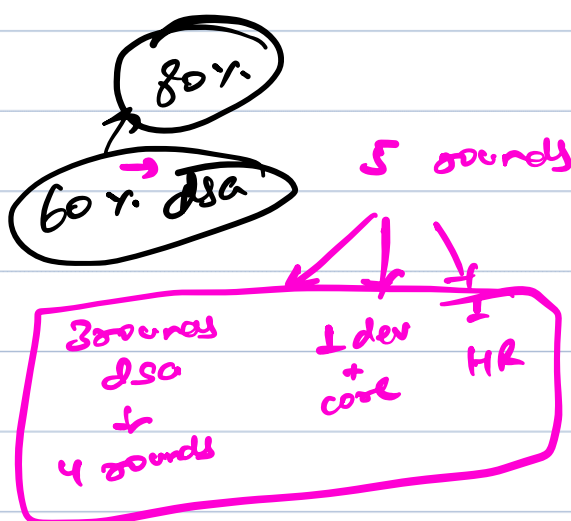 80%
60% dsa
5 rounds
3 rounds
dsa
4 rounds
1 dev
+
core
1
HR